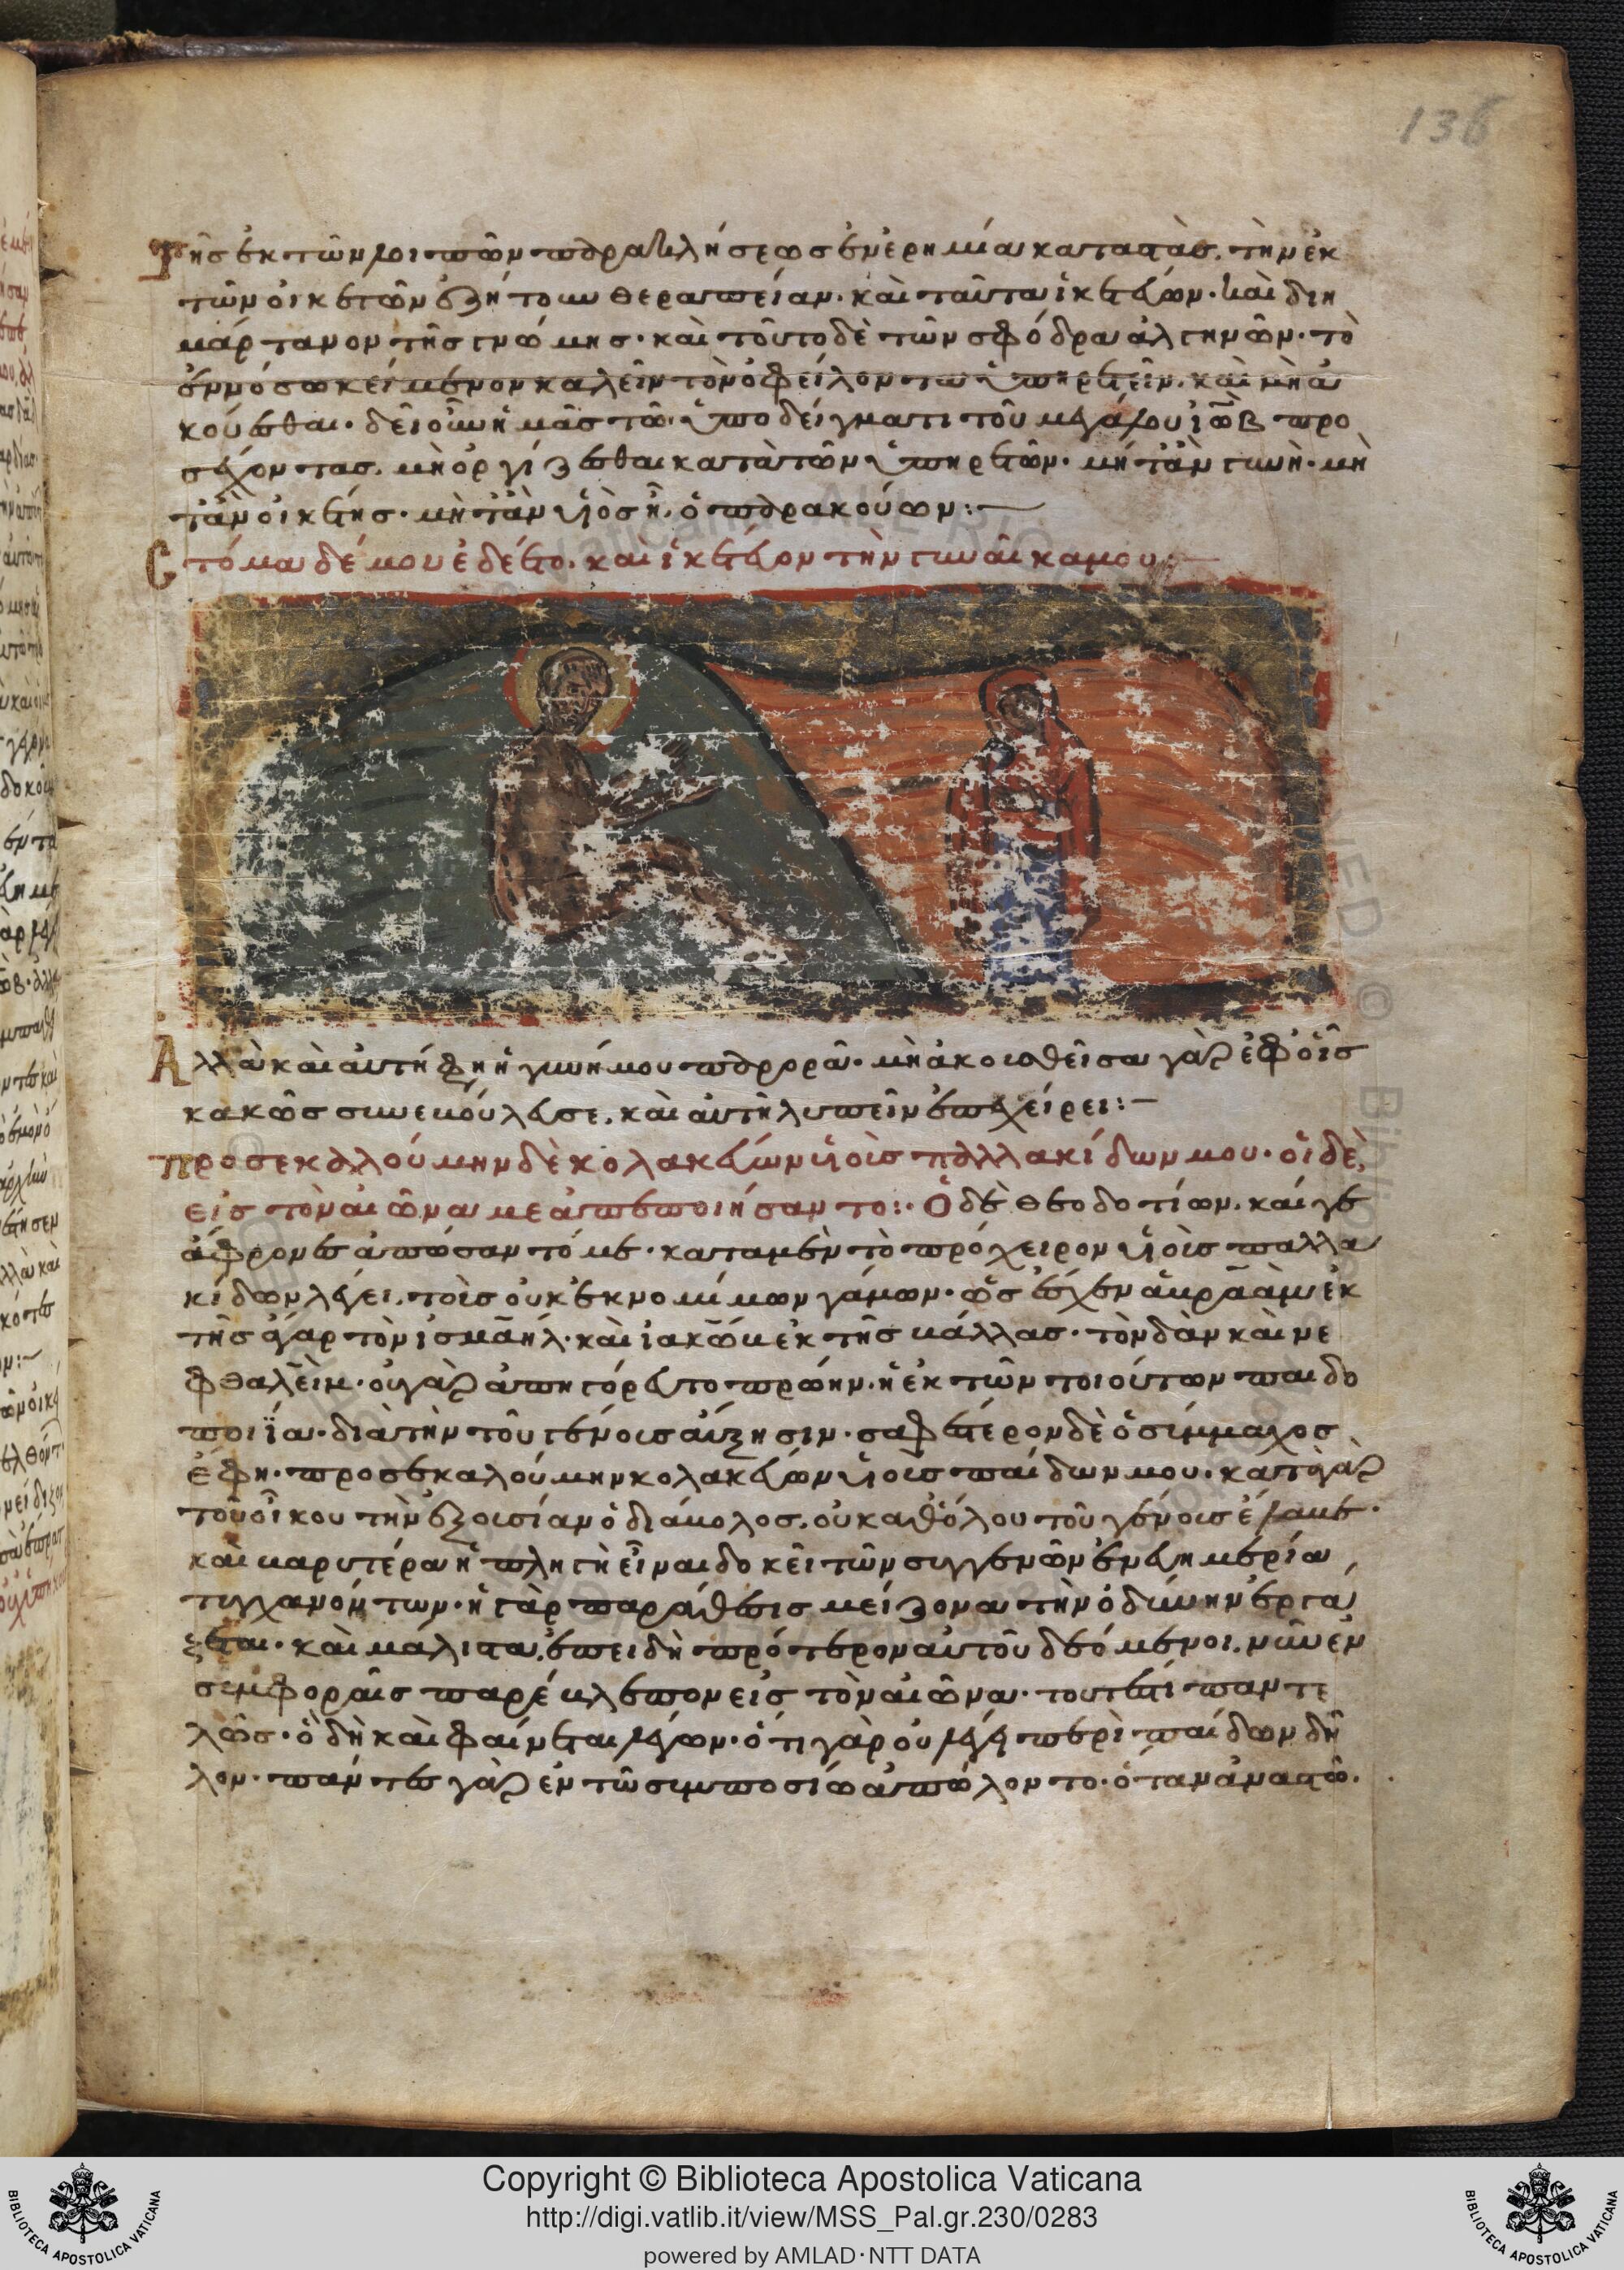 136
Τῆς ἐκ τῶν λοιπῶν παραβλήσεως ἐν ἐρημίαι καταστὰς, τὴν ἐκ
τῶν οἰκετῶν ἐζήτουν θεραπείαν. καὶ ταῦτα ἱκετεύων. καὶ διη
μάρτανον τῆς γνώμης. καὶ τοῦτο δὲ τῶν σφόδρα ἀλγεινῶν. τὸ
ἐν μέσω κείμενον καλεῖν τὸν ὀφείλοντα ὑπηρετεῖν. καὶ μὴ ἀ
κούεσθαι. δεῖ οὖν ἡμᾶς τῶ ὑποδείγματι τοῦ μεγάλου ἰὼβ προ
σέχοντας. μὴ ὀργίζεσθαι κατὰ τῶν ὑπηρετῶν. μήτἂν γυνὴ. μὴ
τἂν οἰκέτης. μὴτἂν υἱὸς ἦ, ὁ παρακούων:
Στόμα δέ μου ἐδέετο. καὶ ἱκέτευον τὴν γυναῖκα μου:
Ἀλλὰ καὶ αὐτή φη ἡ γυνή μου παρορᾶ. μὴ ἀκουσθεῖσα γὰρ ἐφ' οἷς
κακῶς συνεβούλευσε. καὶ αὐτὴ λυπεῖν ἐπεχείρει:
προσεκαλούμην δὲ κολακεύων υἱοὺς παλλακίδων μου. οἱ δὲ,
εἰς τὸν αἰῶνα με ἀπεποιήσαντο: Ὁ δὲ θεοδοτίων. καί γε
ἄφρονες ἀπώσαντό με. κατα μὲν τὸ πρόχειρον υἱοὺς παλλα
κίδων λέγει. τοὺς οὐκ ἐκ νομίμων γάμων. ὡς ἔσχεν ἁβραὰμ ἐκ
τῆς ἄγαρ τὸν ἰσμαὴλ. καὶ ἰακὼβ ἐκ τῆς βάλλας. τὸν δὰν καὶ νε
φθαλεὶμ. οὐ γὰρ ἀπηγόρευτο πρώην. ἡ ἐκ τῶν τοιούτων παιδο
ποιΐα. διὰ τὴν τοῦ γένους αὔξησιν. σαφέστερον δὲ ὁ σύμμαχος
ἔφη. προσεκαλούμην κολακεύων υἱοὺς παίδων μου. κατὰ γὰρ
τοῦ οἴκου τὴν ἐξουσίαν ὁ διάβολος, οὐ καθόλου τοῦ γένους ἔλαβε.
καὶ βαρυτέρα ἡ πληγὴ εἶναι δοκεῖ τῶν συγγενῶν ἐν εὐημερία
τυγχανόντων. ἡ γὰρ παράθεσις μείζονα τὴν ὀδύνην ἐργά
ζεται. καὶ μάλιστα, ἐπειδὴ πρότερον αὐτοῦ δεόμενοι, νῦν ἐν
συμφοραῖς παρέβλεπον εἰς τὸν αἰῶνα. τουτέστι παντε
λῶς. ὃ δὴ καὶ φαίνεται λέγων. ὅτι γὰρ οὐ λέγει περὶ παίδων δῆ
λον. πάντες γὰρ ἐν τῶ συμποσίω ἀπώλοντο. ὅταν ἀναστῶ.
Copyright © Biblioteca Apostolica Vaticana
http://digi.vatlib.it/view/MSS_Pal.gr.230/0283
powered by AMLAD·NTT DATA
BIBLIOTECA APOSTOLICA VATICANA
BIBLIOTECA APOSTOLICA VATICANA